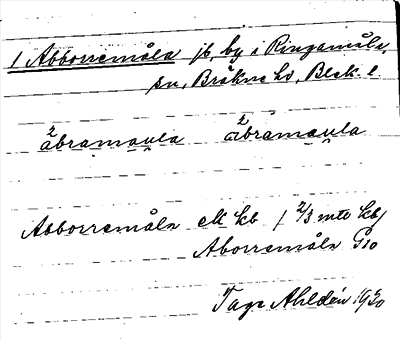 1 Abborremåla jb, by i Ringamåla
sn, Bräkne hd, Blek. l.
åbramaula åbramaula
Abborremåla ek kb / 2/3 mtl kb/
Aborremåla G10
Tage Ahldén 1930